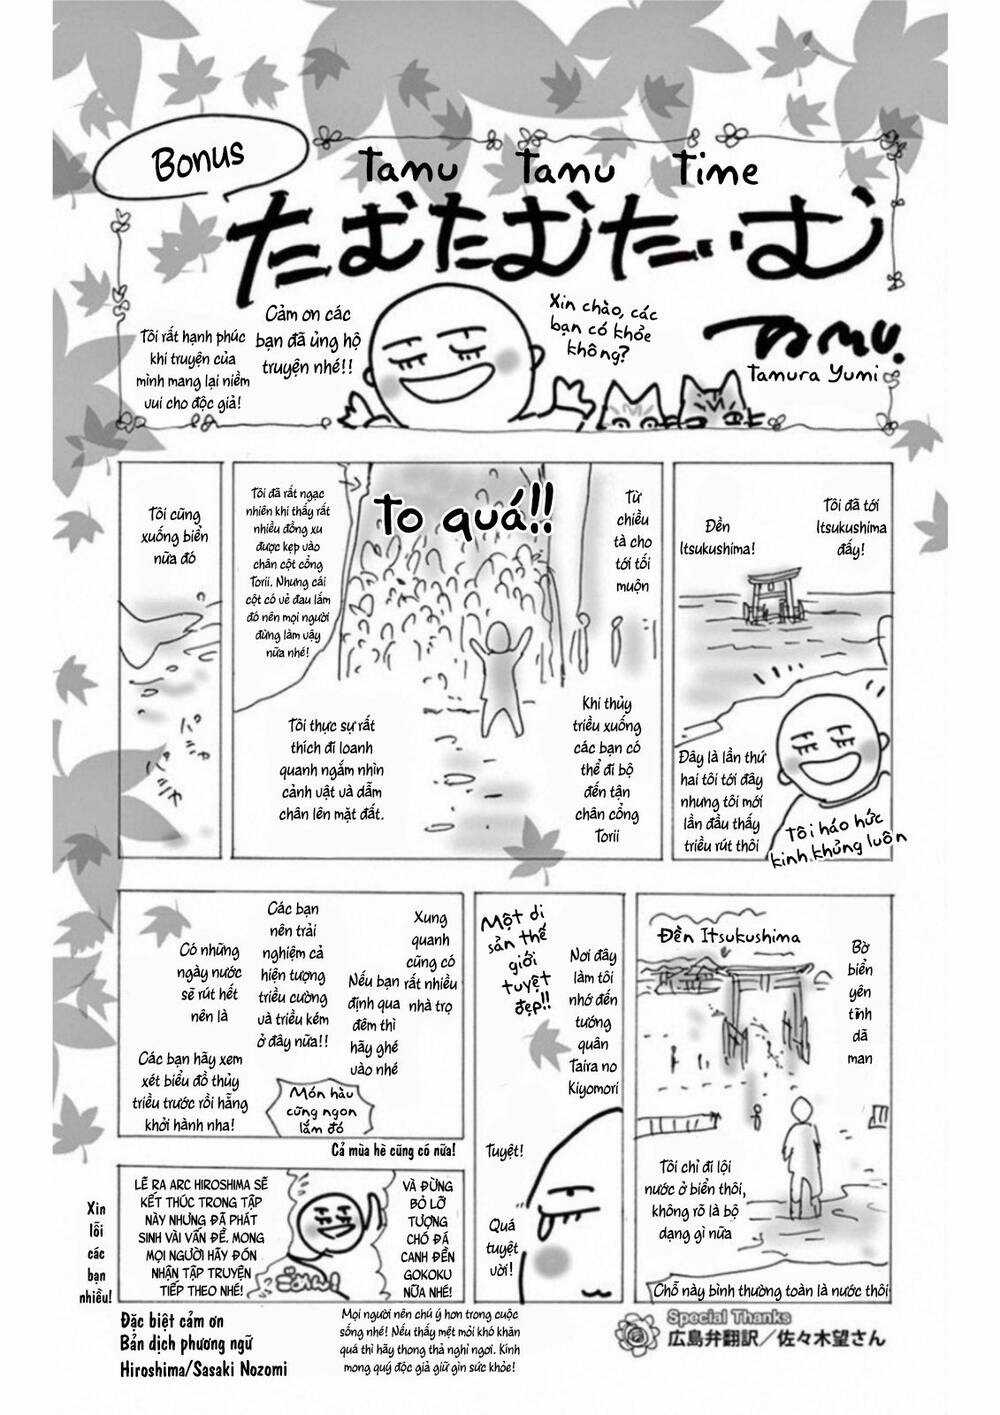 Bonus
Tamu Tamu Time
たむたむたぃむ
Xin chào, các
bạn có khỏe
không?
TAMU.
Tamura Yumi
Cảm ơn các
bạn đã ủng hộ
truyện nhé!!
Tôi rất hạnh phúc
khi truyện của
mình mang lại niềm
vui cho độc giả!
Tôi đã tới
Itsukushima
đấy!
Đền
Itsukushima!
Đây là lần thứ
hai tôi tới đây
nhưng tôi mới
lần đầu thấy
triều rút thôi
Tôi háo hức
kinh khủng luôn
Từ
chiều
tà cho
tới tối
muộn
To quá!!
Tôi đã rất ngạc
nhiên khi thấy rất
nhiều đồng xu
được kẹp vào
chân cột cổng
Torii. Nhưng cái
cột có vẻ đau lắm
đó nên mọi người
đừng làm vậy
nữa nhé!
Khi thủy
triều xuống
các bạn có
thể đi bộ
đến tận
chân cổng
Torii
Tôi thực sự rất
thích đi loanh
quanh ngắm nhìn
cảnh vật và dẫm
chân lên mặt đất.
Tôi cũng
xuống biển
nữa đó
パシャ
パシャ
Đền Itsukushima
Bờ
biển
yên
tĩnh
dã
man
Tôi chỉ đi lội
nước ở biển thôi,
không rõ là bộ
dạng gì nữa
Chỗ này bình thường toàn là nước thôi
Một di
sản thế
giới
tuyệt
đẹp!!
Nơi đây
làm tôi
nhớ đến
tướng
quân
Taira no
Kiyomori
Tuyệt!
Quá
tuyệt
vời!
Xung
quanh
cũng có
rất nhiều
nhà trọ
Nếu bạn
định qua
đêm thì
hãy ghé
vào nhé
Các bạn
nên trải
nghiệm cả
hiện tượng
triều cường
và triều kém
ở đây nữa!!
Có những
ngày nước
sẽ rút hết
nên là
Các bạn hãy xem
xét biểu đồ thủy
triều trước rồi hẵng
khởi hành nha!
Món hàu
cũng ngon
lắm đó
Cả mùa hè cũng có nữa!
VÀ ĐỪNG
BỎ LỠ
TƯỢNG
CHÓ ĐÁ
CANH ĐỀN
GOKOKU
NỮA NHÉ!
LẼ RA ARC HIROSHIMA SẼ
KẾT THÚC TRONG TẬP
NÀY NHƯNG ĐÃ PHÁT
SINH VÀI VẤN ĐỀ. MONG
MỌI NGƯỜI HÃY ĐÓN
NHẬN TẬP TRUYỆN
TIẾP THEO NHÉ!
ごめん!
Xin
lỗi
các
bạn
nhiều!
Đặc biệt cảm ơn
Bản dịch phương ngữ
Hiroshima/Sasaki Nozomi
Mọi người nên chú ý hơn trong cuộc
sống nhé! Nếu thấy mệt mỏi khó khăn
quá thì hãy thong thả nghỉ ngơi. Kính
mong quý độc giả giữ gìn sức khỏe!
Special Thanks
広島弁翻訳／佐々木望さん